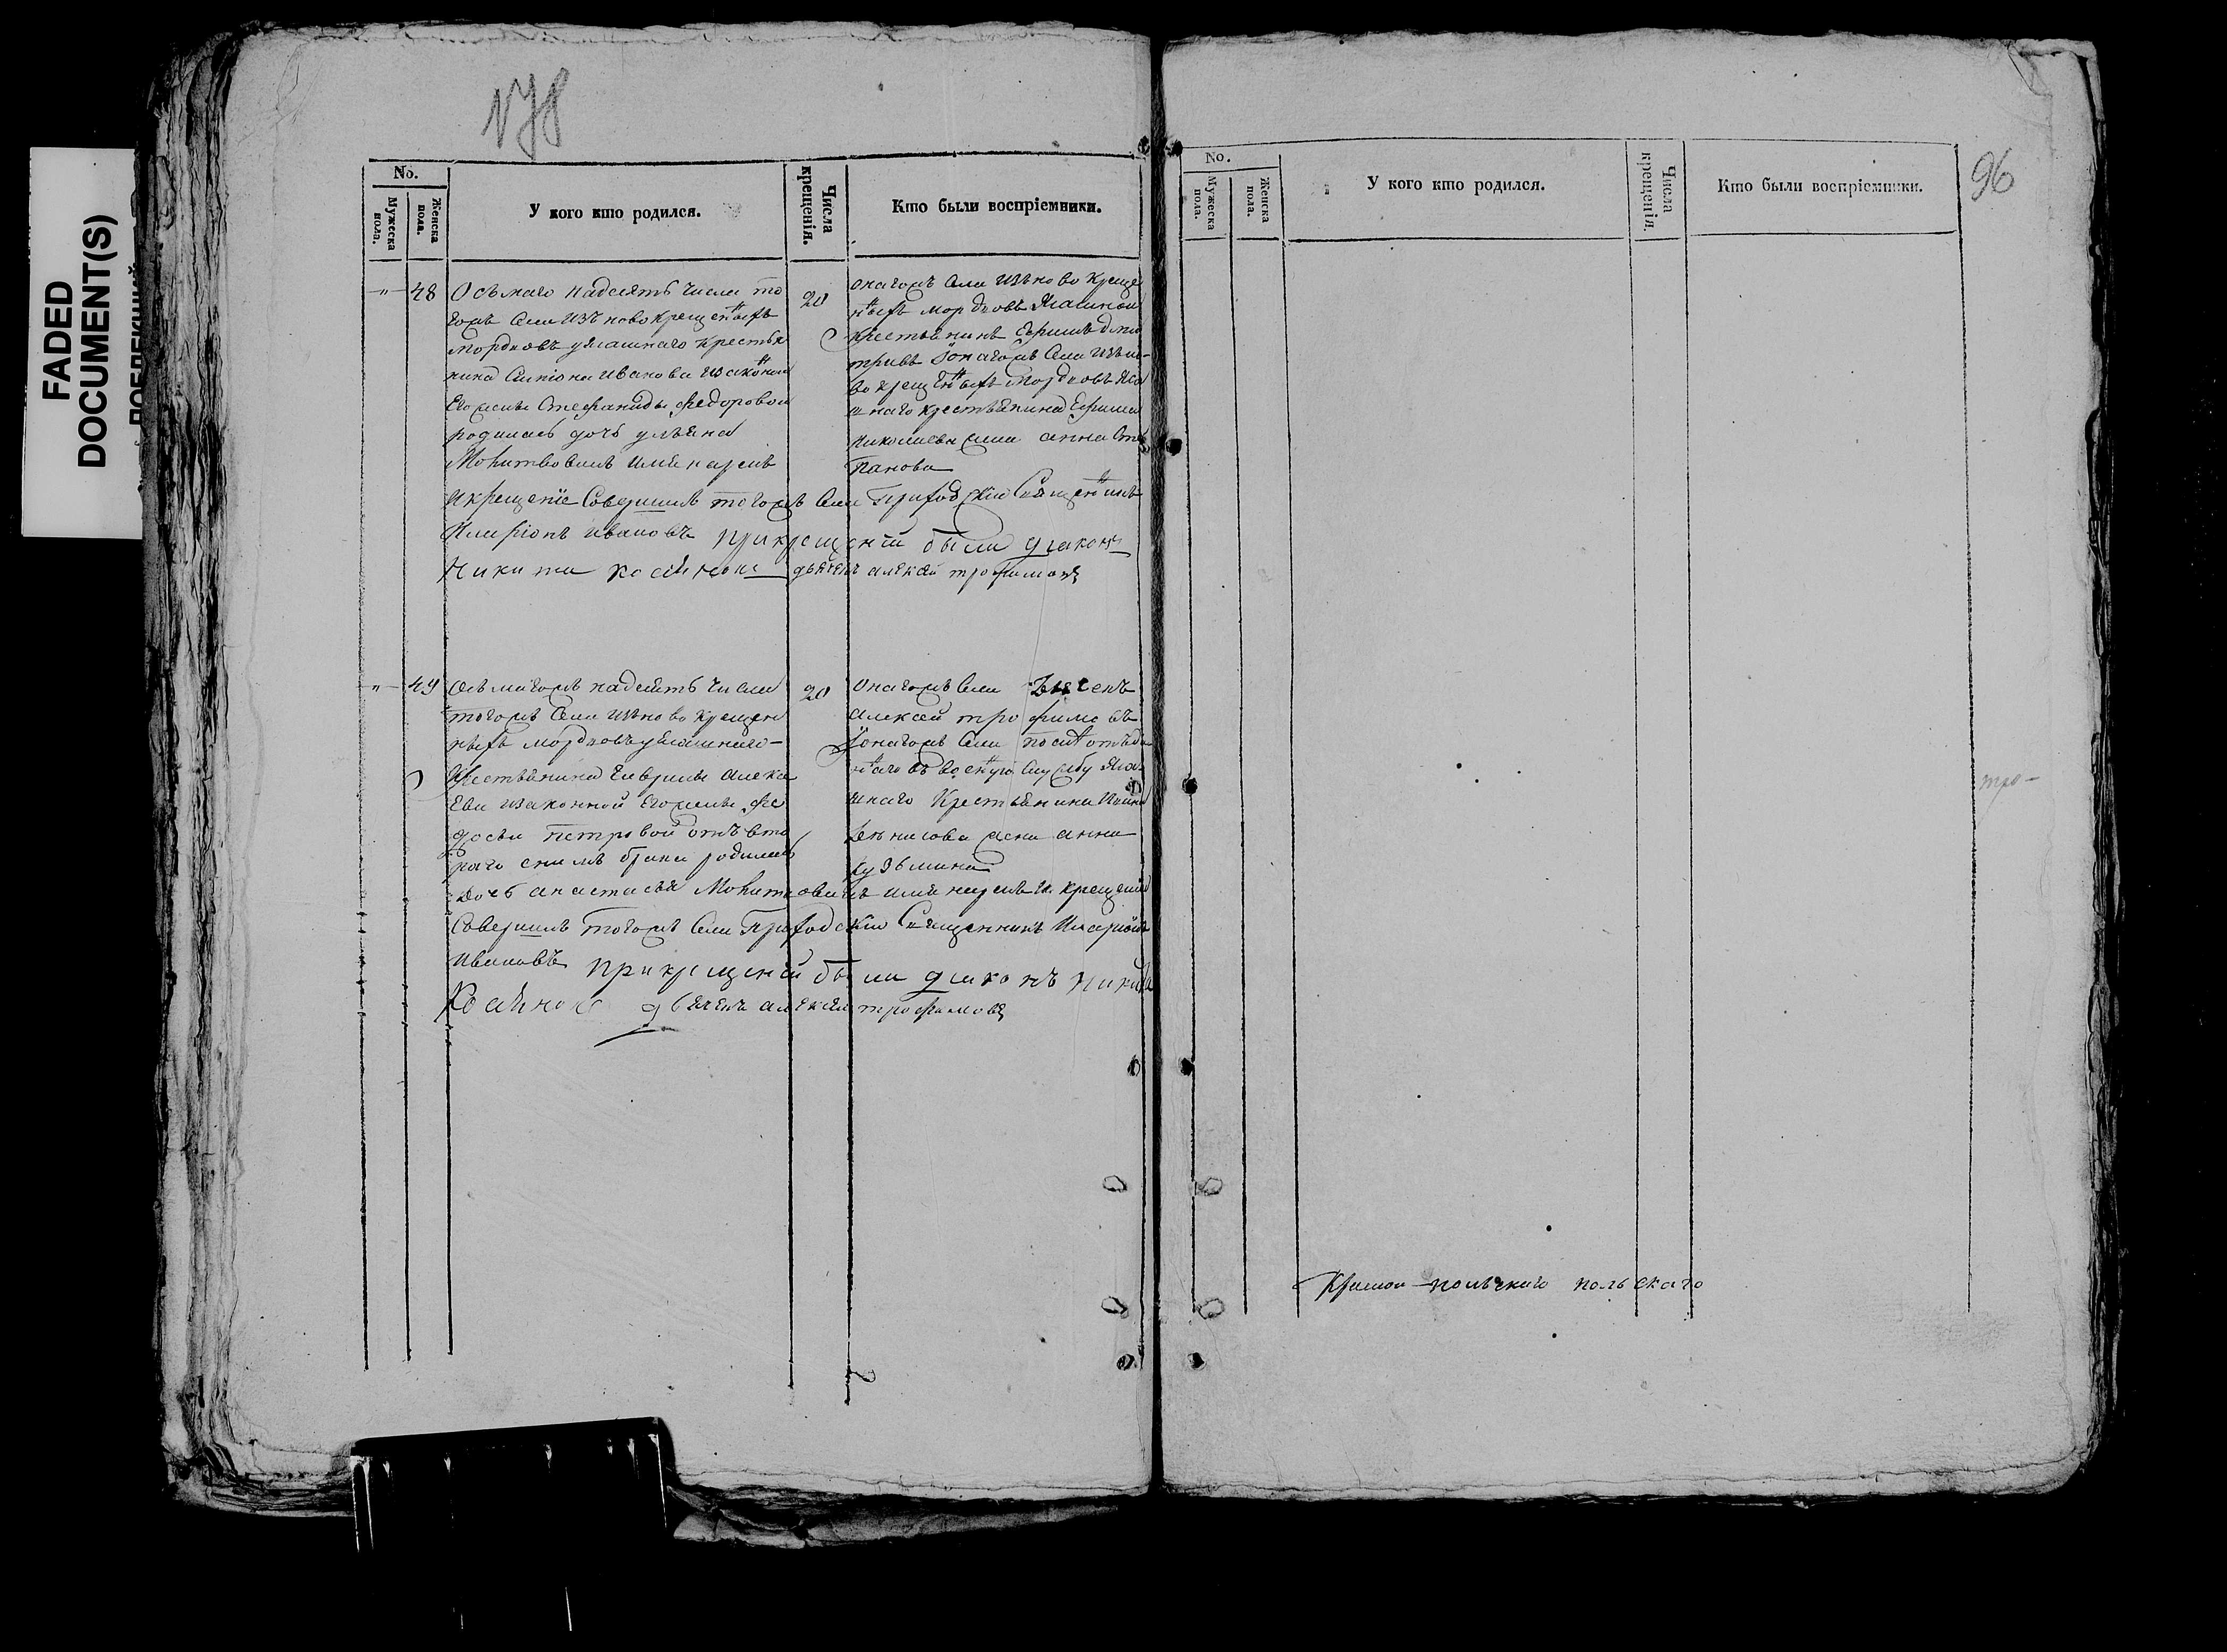 FADED
DOCUMENT(S)
178
No.
Мужеска пола.
Женска пола.
У кого кто родился.
Числа крещенія.
Кто были воспріемники.
48
Осьмаго надесять числа то
гожъ села изъ новокрещенныхъ
мордковъ уясашнаго крестья
нина Иванова изаконной
Егожены Стефаниды Федоровой
родилась дочь ульяна
Молитвовалъ имя нарекъ
20
онагожъ села изъ ново креще
нныхъ мордковъ Ясашной
крестьянинъ Ефимъ дми
тривъ онагожъ села изъ но-
во крещенныхъ мордковъ Яса
шнаго крестьянина Ефима
Николаева жена анна Сте
панова
Икрещеніе Совершилъ тогожъ Села Приходскій Священникъ
Иларіонъ Ивановъ прикрещеніи были діаконъ
Никита дьячекъ алексей трофимовъ
49
Осьмагожъ надесять числа
тогожъ Села изъ ново крещен
ныхъ мордковъ уясашнаго-
Крестьянина Гаврилы алекс
Ева изаконной Егожены Фе
досьи петровой отъ вто
раго снимъ брака родилась
20
Онагожъ Села дьячекъ
алексей трофимовъ
онагожъ Села
въ военную службу Яса
шнаго Крестьянина
Денисова жена анна
кузьмина
Дочь анастасья Молитвовалъ имя нарекъ и крещеніе
Совершилъ тогожъ Села Приходскій Священникъ Иларіонъ
Ивановъ прикрещеніи были діаконъ Никита
дьячекъ алексей трофимовъ
No.
Мужеска пола.
Женска пола.
У кого кто родился.
Числа крещенія.
Кто были воспріемники.
96
тро-
польскаго